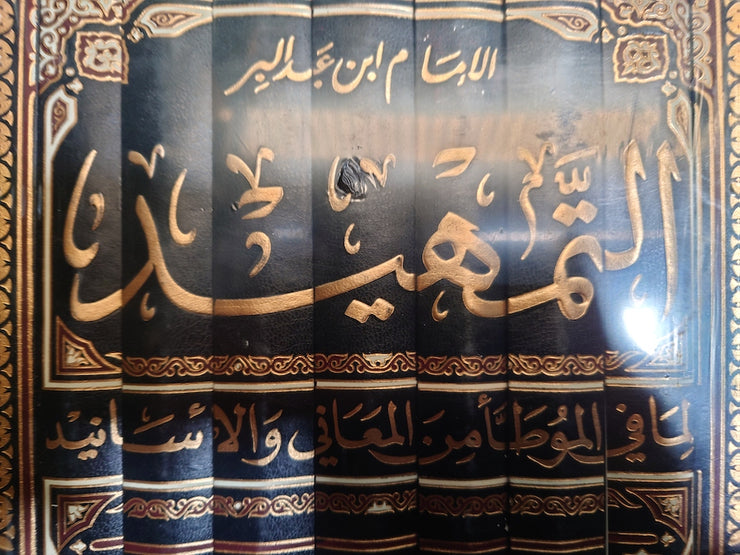 الإمام ابن عبد البر
التمهيد
لما في الموطأ من المعاني والأسانيد